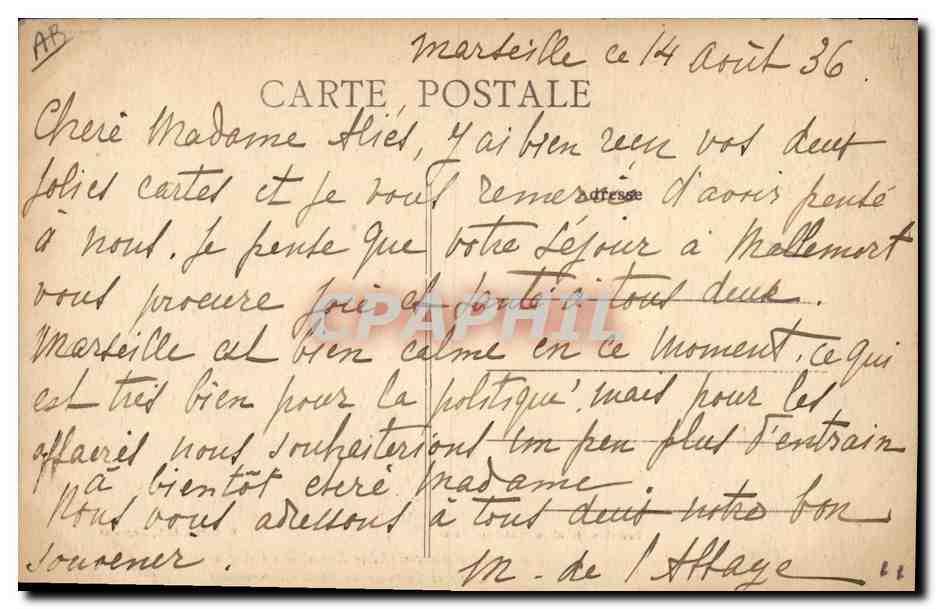 AB
Marseille ce 14 Août 36.
CARTE POSTALE
Cherè Madame Aliés, J'ai bien reçu vos deux
jolies cartes et je vous remercie d'avoir pensé
Adresse
à nous. Je pense que votre séjour à Mallemort
vous procure joie et santé à tous deux.
CPAPHIL
Marseille est bien calme en ce moment. ce qui
est très bien pour la politique, mais pour les
affaires nous souhaiterions un peu plus d'entrain
à bientôt cherè Madame.
Nous vous adressons à tous deux notre bon
souvenir.
M. de l'Abbaye